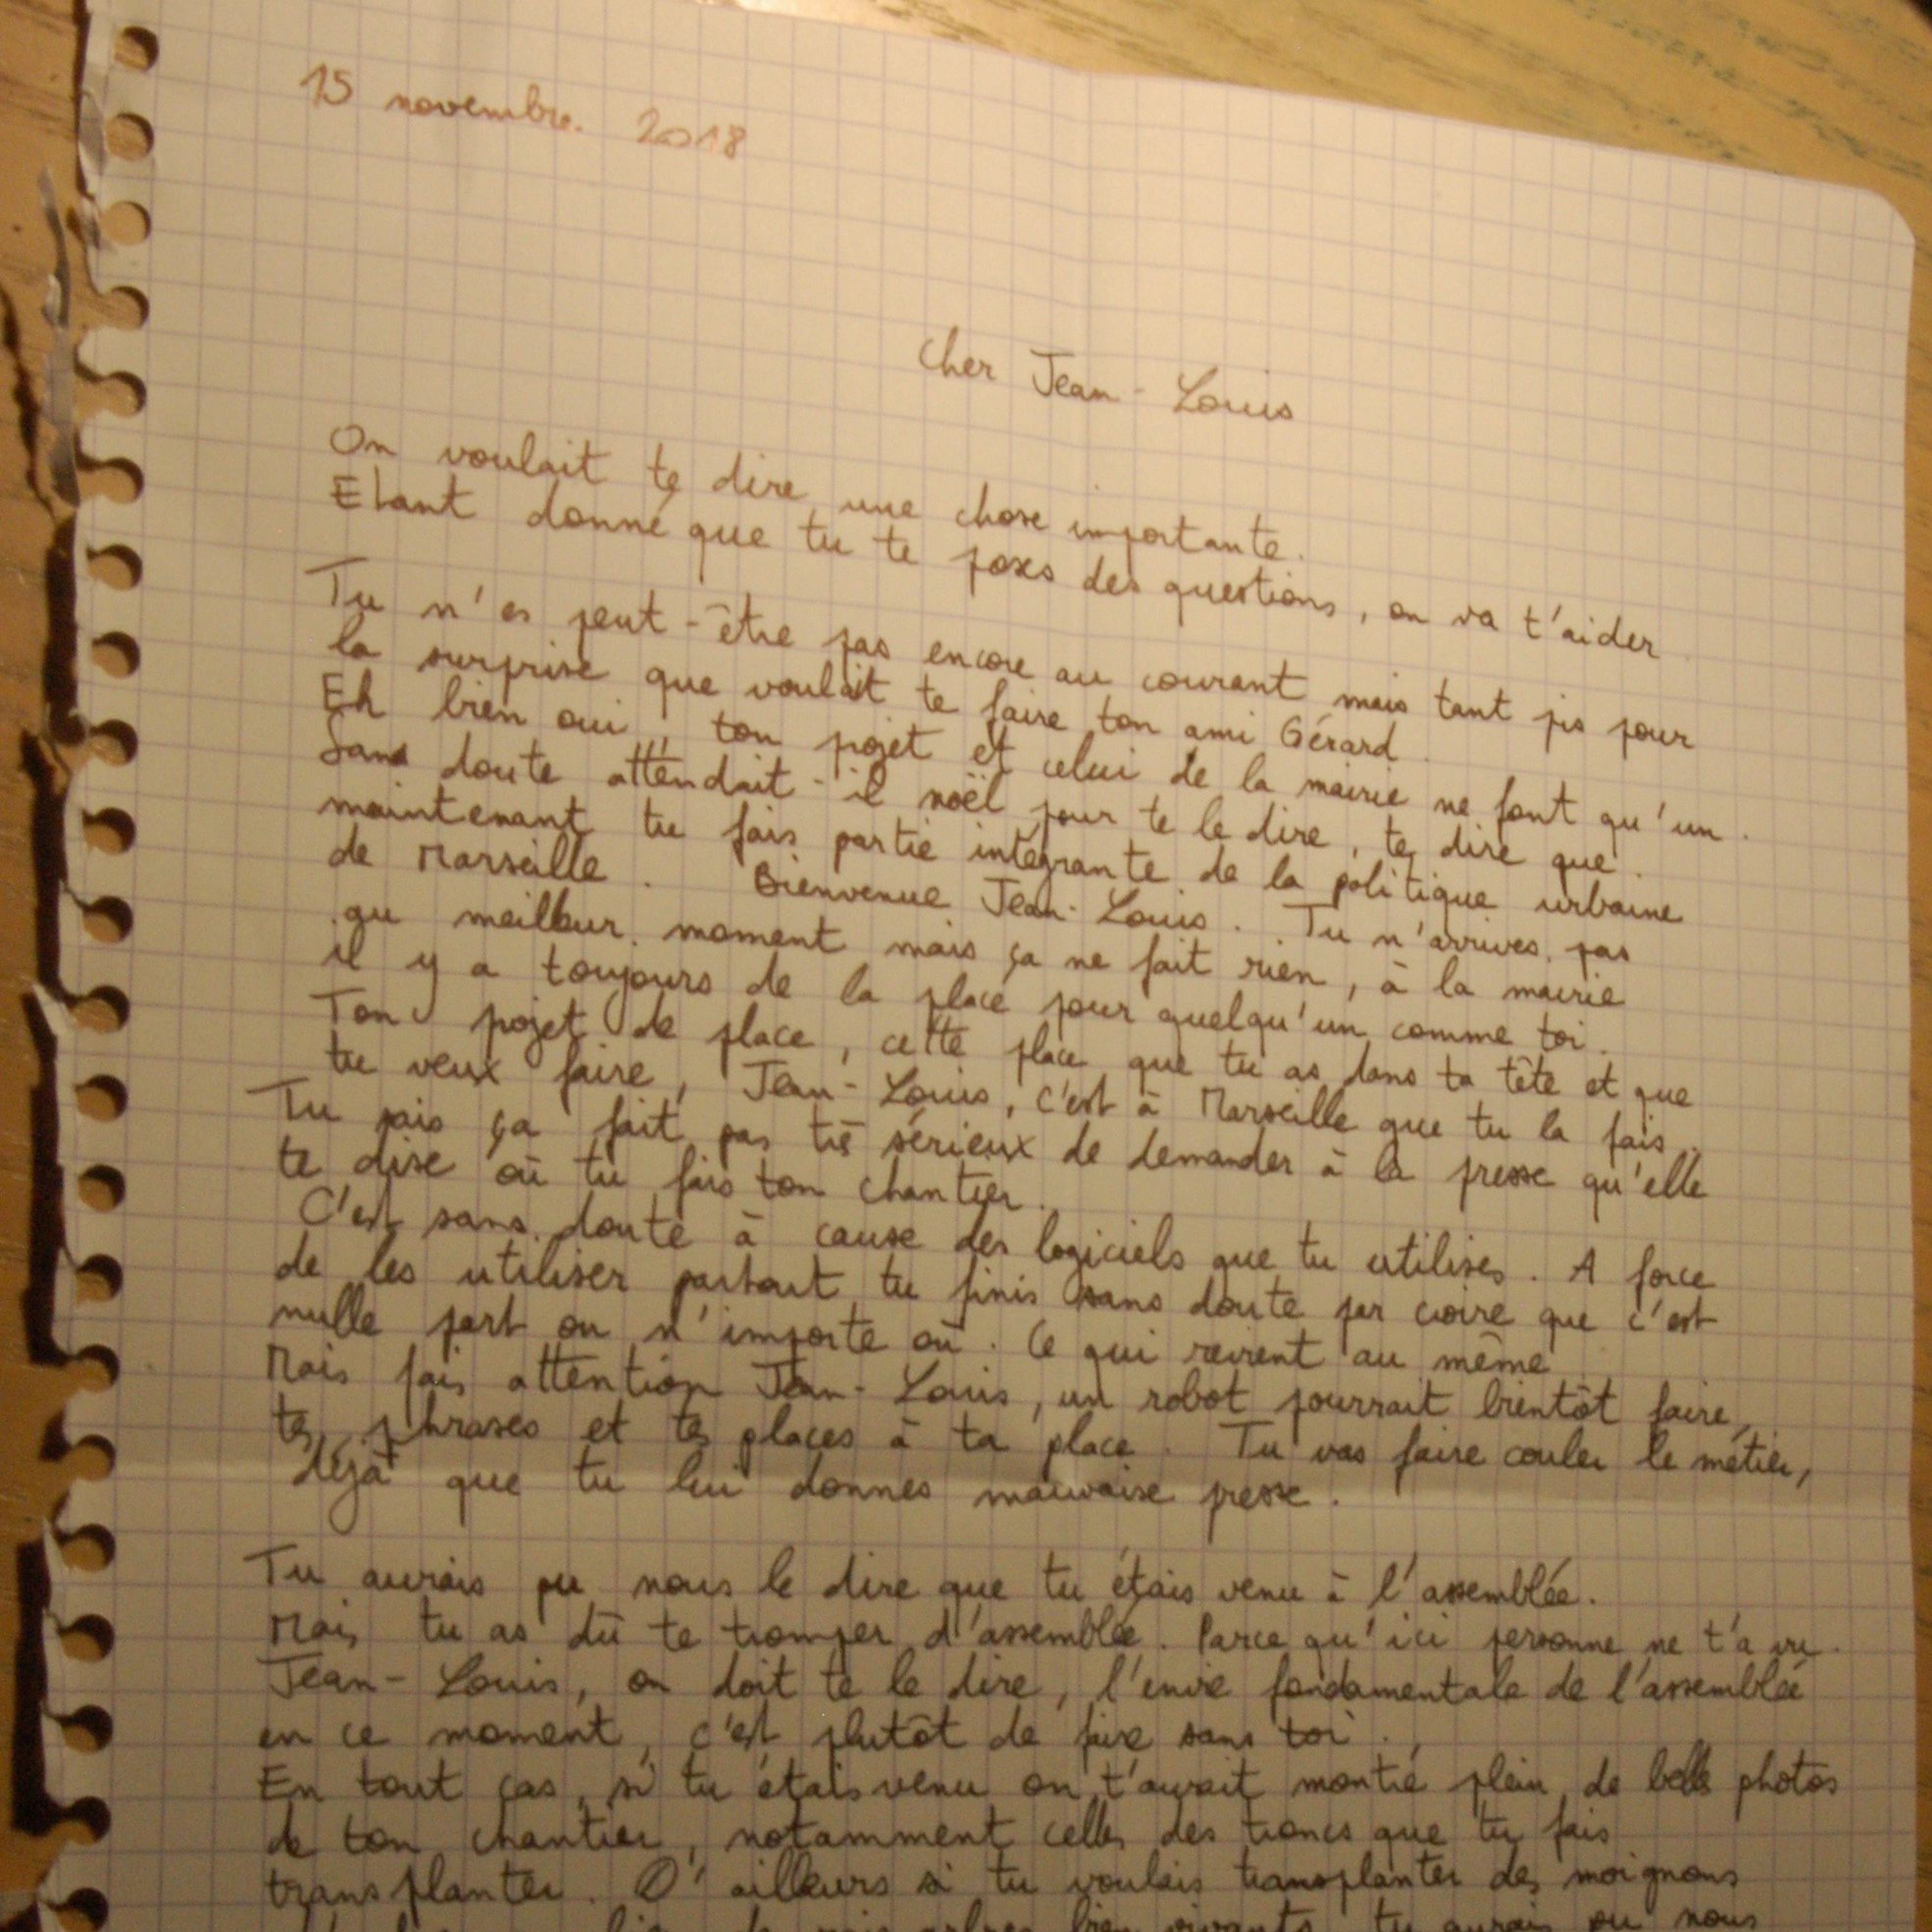 15 novembre. 2018
Cher Jean-Louis
On voulait te dire une chose importante.
Etant donné que tu te poses des questions, on va t'aider.
Tu n'es peut-être pas encore au courant mais tant pis pour
la surprise que voulait te faire ton ami Gérard.
Eh bien oui, ton projet et celui de la mairie ne font qu'un.
Sans doute attendait-il noël pour te le dire, te dire que
maintenant tu fais partie intégrante de la politique urbaine
de Marseille. Bienvenue Jean-Louis. Tu n'arrives pas
au meilleur moment mais ça ne fait rien, à la mairie
il y a toujours de la place pour quelqu'un comme toi.
Ton projet de place, cette place que tu as dans ta tête et que
tu veux faire, Jean-Louis, c'est à Marseille que tu la fais.
Tu sais ça fait pas très sérieux de demander à la presse qu'elle
te dise où tu fais ton chantier.
C'est sans doute à cause des logiciels que tu utilises. A force
de les utiliser partout tu finis sans doute par croire que c'est
nulle part ou n'importe où. Ce qui revient au même.
Mais fais attention Jean-Louis, un robot pourrait bientôt faire
tes phrases et tes places à ta place. Tu vas faire couler le métier,
déjà que tu lui donnes mauvaise presse.
Tu aurais pu nous le dire que tu étais venu à l'assemblée.
Mais tu as dû te tromper d'assemblée. Parce qu'ici personne ne t'a vu.
Jean-Louis, on doit te le dire, l'envie fondamentale de l'assemblée
en ce moment, c'est plutôt de faire sans toi.
En tout cas, si tu étais venu on t'aurait montré plein de belles photos
de ton chantier, notamment celles des troncs que tu fais
transplanter. D'ailleurs si tu voulais transplanter des moignons
arbres bien vivants, tu aurais pu nous